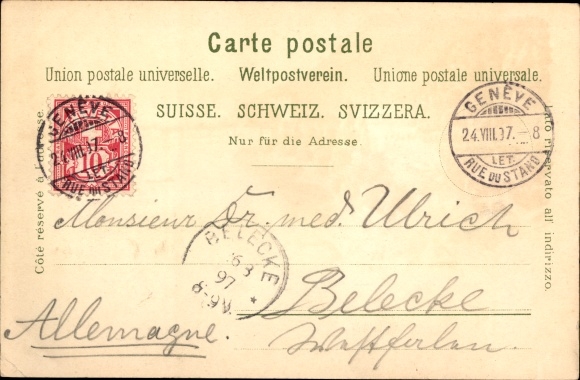 Carte postale
Union postale universelle. Weltpostverein. Unione postale universale.
SUISSE. SCHWEIZ. SVIZZERA.
Nur für die Adresse.
Côté réservé à l'adresse.
Lato riservato all' indirizzo.
GENÈVE
24.VIII.97.–8
LET.
RUE DU STAND
10
GENÈVE
24.VIII.97.–8
LET.
RUE DU STAND
Monsieur Dr. med. Ulrich
BELECKE
97
8-9V
*
Belecke
Westfalen.
Allemagne.